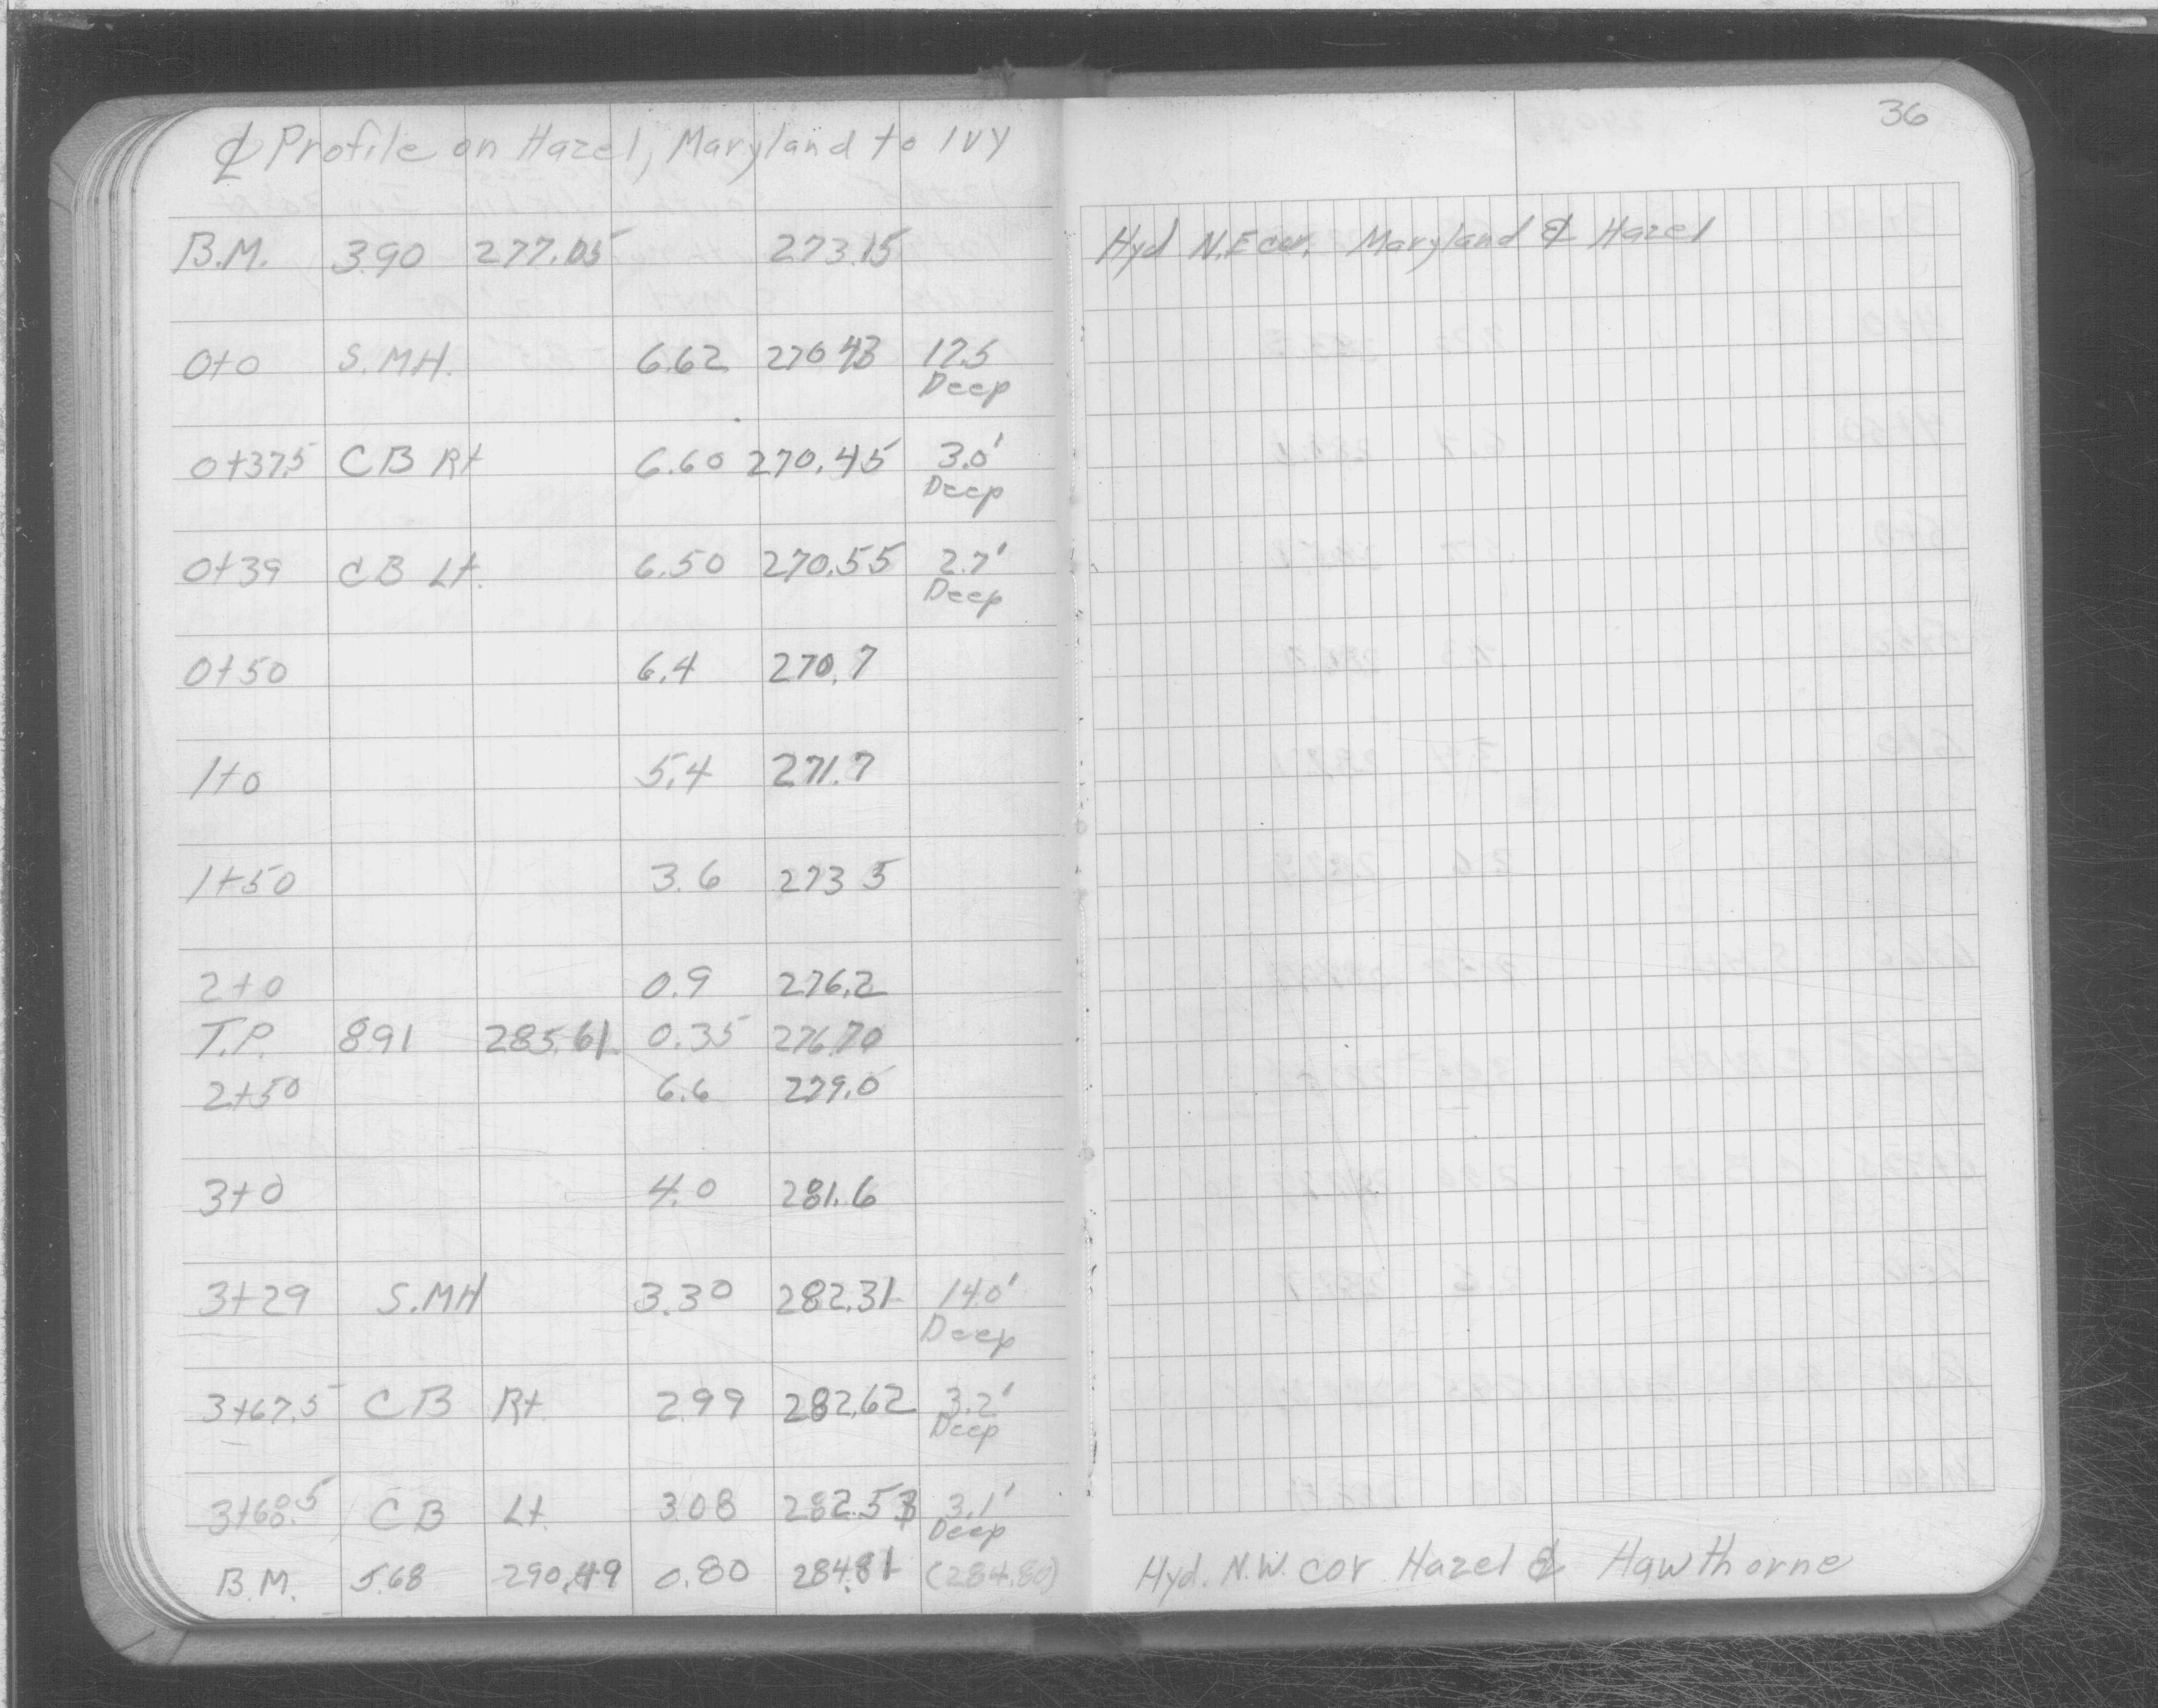 36
℄ Profile on Hazel, Maryland to IVY
B.M. 3.90 277.05 273.15 Hyd N.E cor. Maryland & Hazel
0+0 S.MH. 6.62 270 43 12.5
Deep
0+37.5 CB Rt 6.60 270.45 3.0'
Deep
0+39 CB Lt. 6.50 270.55 2.7'
Deep
0+50 6.4 270.7
1+0 5.4 271.7
1+50 3.6 273 5
2+0 0.9 276.2
T.P. 891 285.61 0.35 276.70
2+50 6.6 279.0
3+0 4.0 281.6
3+29 S.MH 3.30 282.31 14.0'
Deep
3+67.5 CB Rt 2.99 282.62 3.2'
Deep
3+68.5 CB Lt. 3.08 282.53 3.1'
Deep
B.M. 5.68 290.49 0.80 284.81 (284.80) Hyd. N.W. cor Hazel & Hawthorne